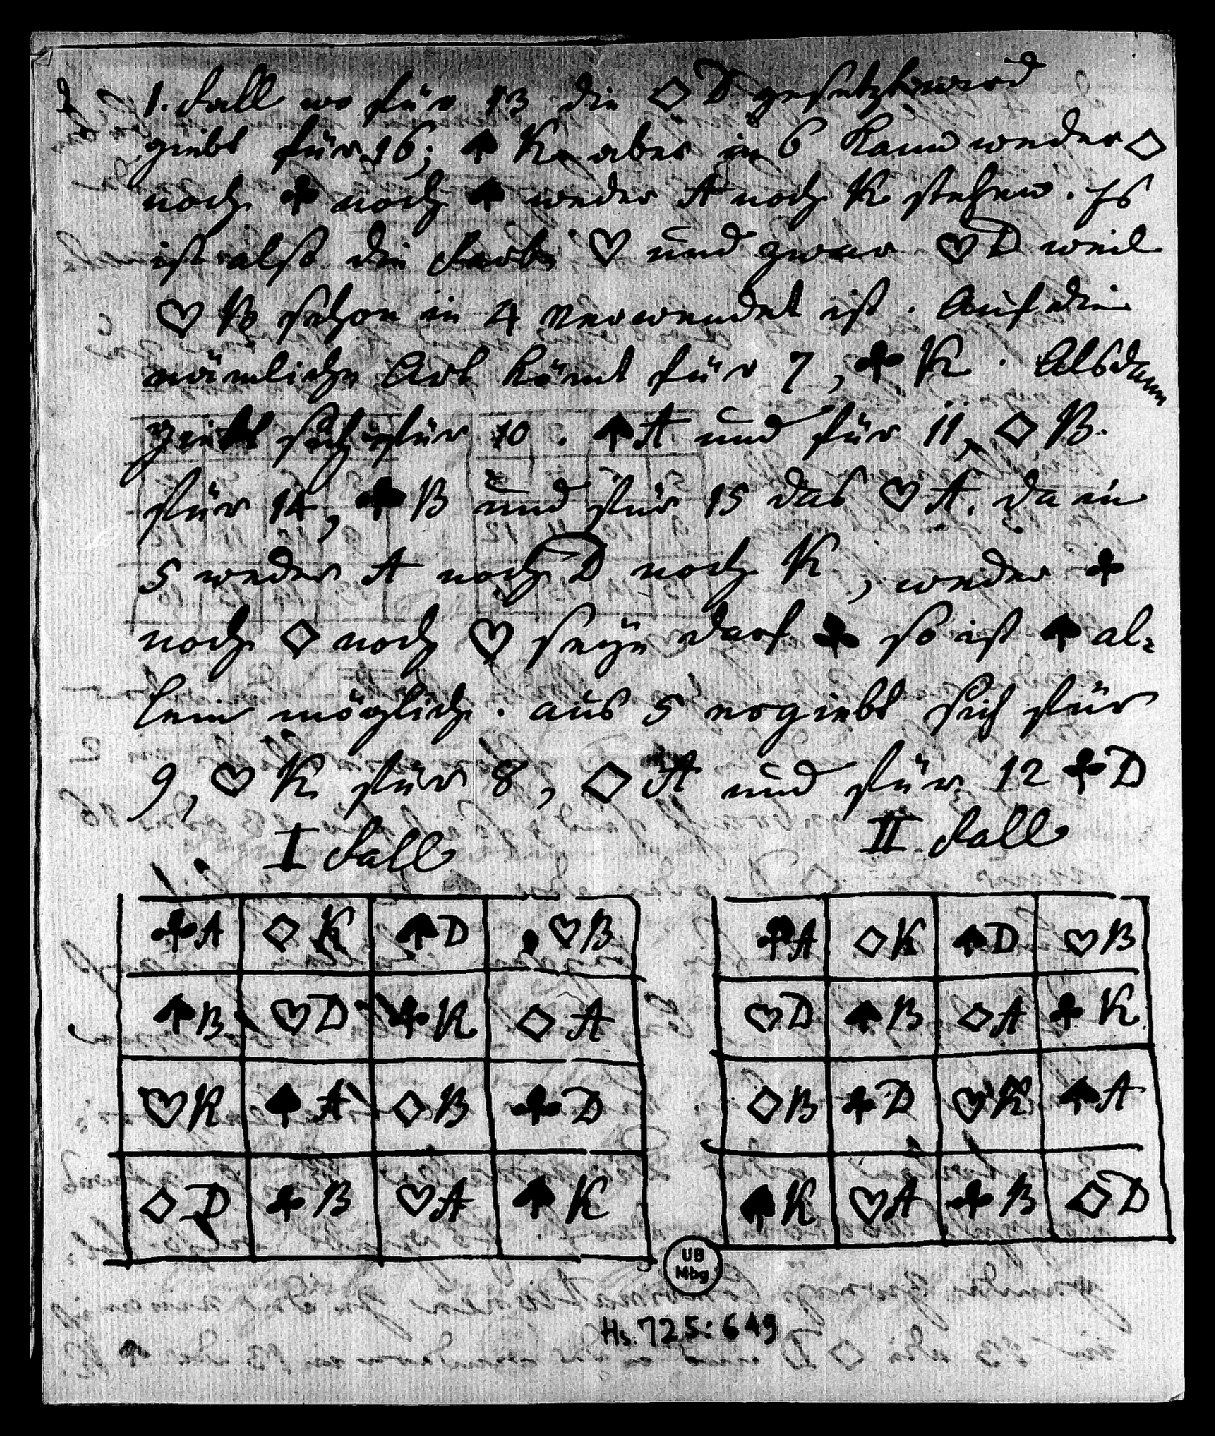 1. Fall wo für 13 die ♢ D gesetzt wird
giebt für 16; ♠ K. aber in 6 kann weder ♢
noch ♣ noch ♠ weder A noch K stehen. Es
ist also die Farbe ♡ und zwar ♡ D weil
♡ B schon in 4 verwendet ist. Auf die
nämliche Art kömt für 7, ♣ K. Alsdann
giebt sich für 10. ♠ A und für 11, ♢ B.
für 14, ♣ B und für 15 das ♡ A. da in
5 weder A noch D noch K, weder ♣
noch ♢ noch ♡ seyn darf ♣ so ist ♠ al=
lein möglich. aus 5 ergiebt sich für
9, ♡ K für 8, ♢ A und für 12 ♣ D
I Fall II Fall
♣ A ♢ K ♠ D ♡ B ♣ A ♢ K ♠ D ♡ B
♠ B ♡ D ♣ K ♢ A ♡ D ♠ B ♢ A ♣ K
♡ K ♠ A ♢ B ♣ D ♢ B ♣ D ♡ K ♠ A
♢ D ♣ B ♡ A ♠ K ♠ K ♡ A ♣ B ♢ D
UB
Mbg
Hs. 725:649